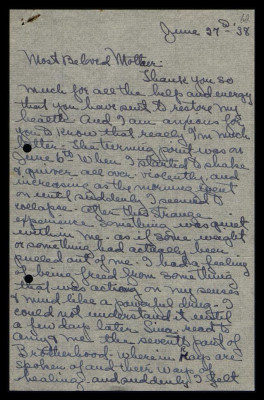 62
June 27th '38
Most Beloved Mother:
Thank you so
much for all the help and energy
that you have sent to restore my
health. And I am anxious for
you to know that really I'm much
better. The turning point was on
June 6th when I started to shake
& quiver all over violently, and
increasing as the morning went
on until suddenly I seemed to
collapse. After this strange
experience something was quiet
within me - as if some weight
or something had actually been
pulled out of me. I had a feeling
of being freed from something
that was acting on my senses
much like a powerful drug - I
could not understand it until
a few days later Sina read to
and me the seventh part of
Brotherhood - wherein Rays are
spoken of and their ways of
healing, and suddenly I felt